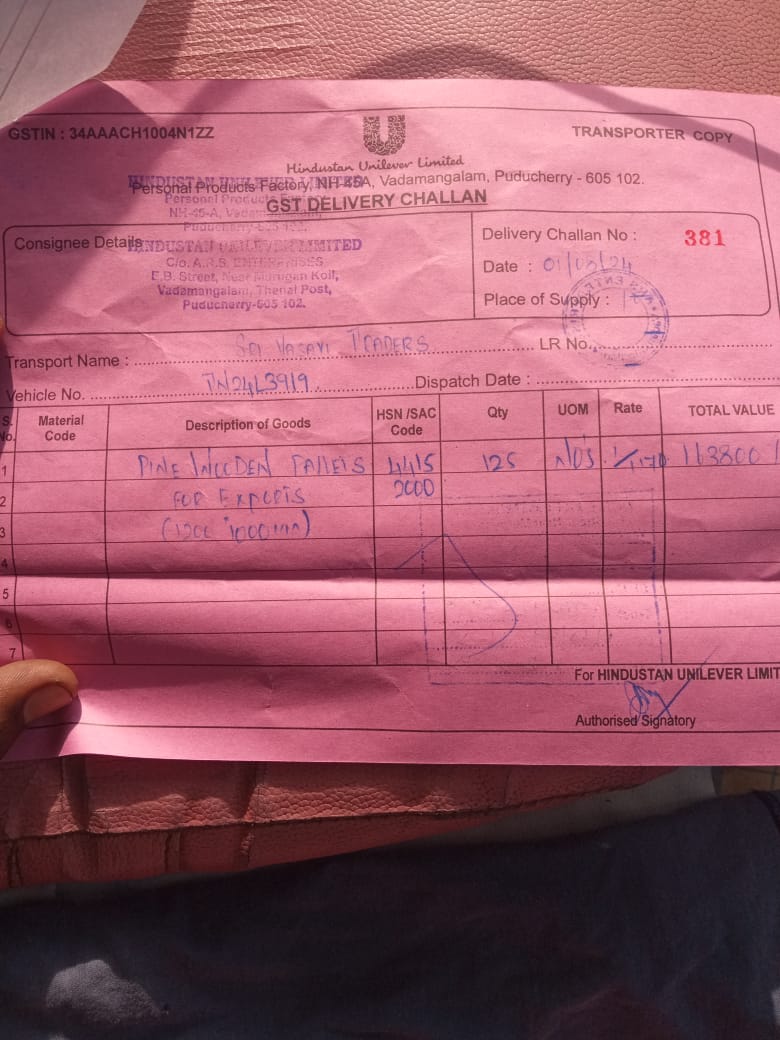 GSTIN : 34AAACH1004N1ZZ
TRANSPORTER COPY
Hindustan Unilever Limited
HINDUSTAN UNILEVER LIMITED
Personal Products Factory, NH-45A, Vadamangalam, Puducherry - 605 102.
GST DELIVERY CHALLAN
Consignee Details
HINDUSTAN UNILEVER LIMITED
C/o. A.R.S. ENTERPRISES
E.B. Street, Near Murugan Koil,
Vadamangalam, Thenal Post,
Puducherry-605 102.
Delivery Challan No : 381
Date : 01/03/24
Place of Supply :
Transport Name : Sri Vasavi Traders
LR No.
Vehicle No. TN24L3919 Dispatch Date :
S. No. Material Code Description of Goods HSN /SAC Code Qty UOM Rate TOTAL VALUE
1 PINE WOODEN PALLETS 4415 NOS
2 FOR EXPORTS 2000
3
4
5
6
7
For HINDUSTAN UNILEVER LIMIT
Authorised Signatory